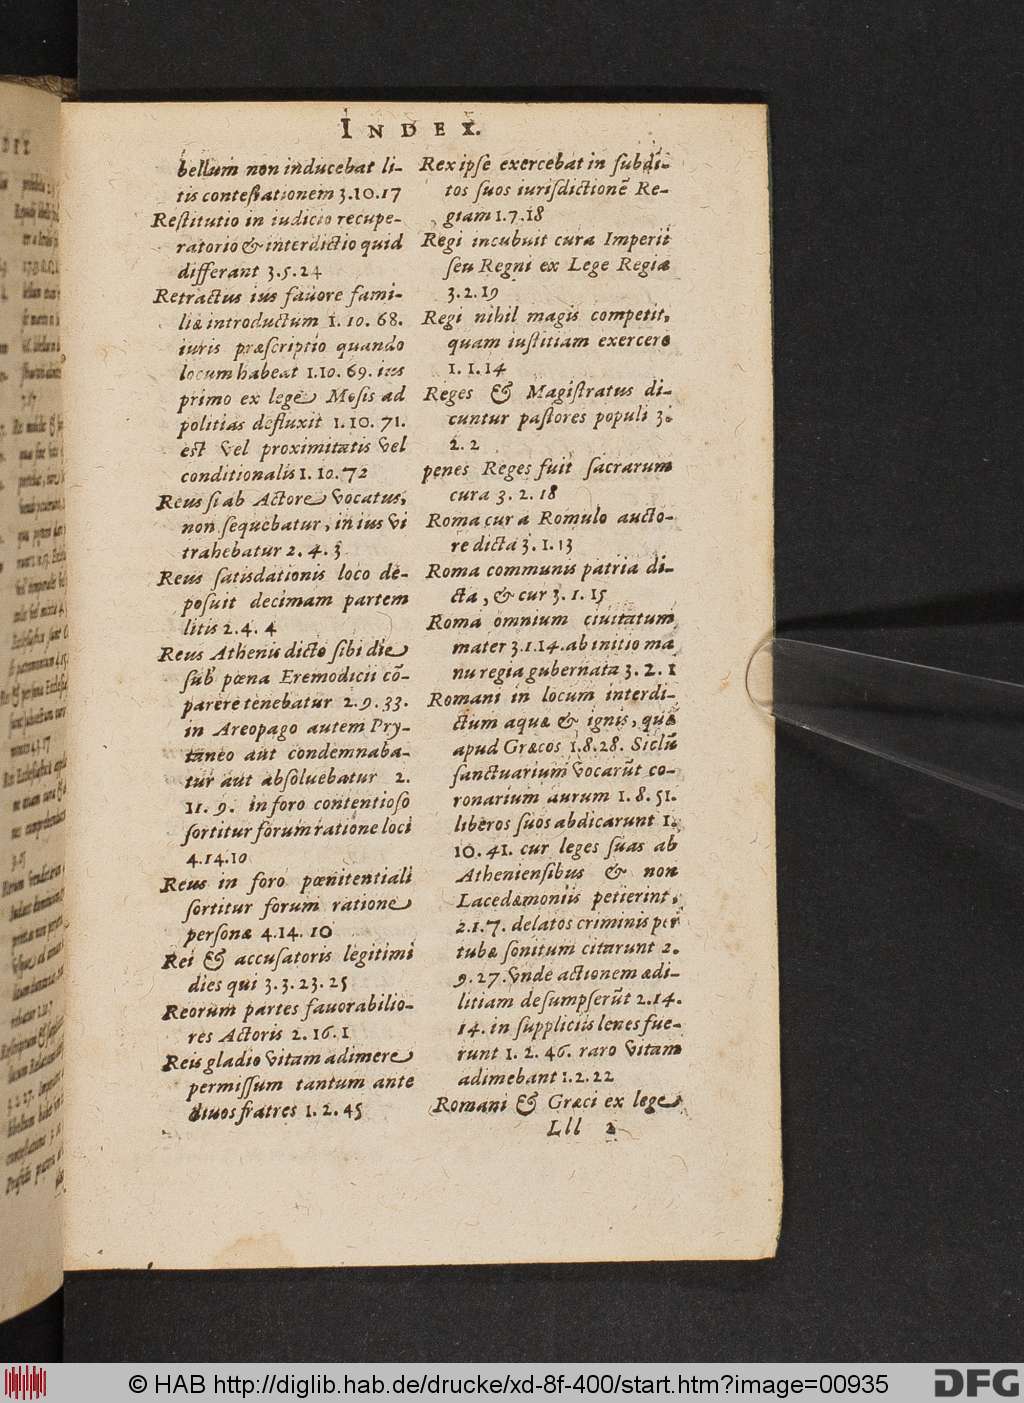 INDEX.
bellum non inducebat li-
tis contestationem 3.10.17
Restitutio in iudicio recupe-
ratorio & interdictio quid
differant 3.5.24
Retractus ius favore fami-
liæ introductum 1.10.68.
iuris præscriptio quando
locum habeat 1.10.69. ius
primo ex lege Mosis ad
politias defluxit 1.10.71.
est vel proximitatis vel
conditionalis 1.10.72
Reus si ab Actore vocatus,
non sequebatur, in ius vi
trahebatur 2.4.3
Reus satisdationis loco de-
posuit decimam partem
litis 2.4.4
Reus Athenis dicto sibi die
sub pœna Eremodicii cō-
parere tenebatur 2.9.33.
in Areopago autem Pry-
taneo aut condemnaba-
tur aut absoluebatur 2.
11.9. in foro contentioso
sortitur forum ratione loci
4.14.10
Reus in foro pœnitentiali
sortitur forum ratione
personæ 4.14.10
Rei & accusatoris legitimi
dies qui 3.3.23.25
Reorum partes favorabilio-
res Actoris 2.16.1
Reis gladio vitam adimere
permissum tantum ante
diuos fratres 1.2.45
Rex ipse exercebat in subdi-
tos suos iurisdictionē Re-
giam 1.7.18
Regi incubuit cura Imperii
seu Regni ex Lege Regia
3.2.19
Regi nihil magis competit,
quam iustitiam exercere
1.1.14
Reges & Magistratus di-
cuntur pastores populi 3.
2.2
penes Reges fuit sacrarum
cura 3.2.18
Roma cur a Romulo aucto-
re dicta 3.1.13
Roma communis patria di-
cta, & cur 3.1.15
Roma omnium civitatum
mater 3.1.14. ab initio ma
nu regia gubernata 3.2.1
Romani in locum interdi-
ctum aquæ & ignis, quæ
apud Græcos 1.8.28. Siclū
sanctuarium vocarūt co-
ronarium aurum 1.8.51.
liberos suos abdicarunt 1.
10.41. cur leges suas ab
Atheniensibus & non
Lacedæmoniis petierint,
2.1.7. delatos criminis per
tubæ sonitum citarunt 2.
9.27. vnde actionem ædi-
litiam desumpserūt 2.14.
14. in suppliciis lenes fue-
runt 1.2.46. raro vitam
adimebant 1.2.22
Romani & Græci ex lege
Lll 2
© HAB http://diglib.hab.de/drucke/xd-8f-400/start.htm?image=00935
DFG